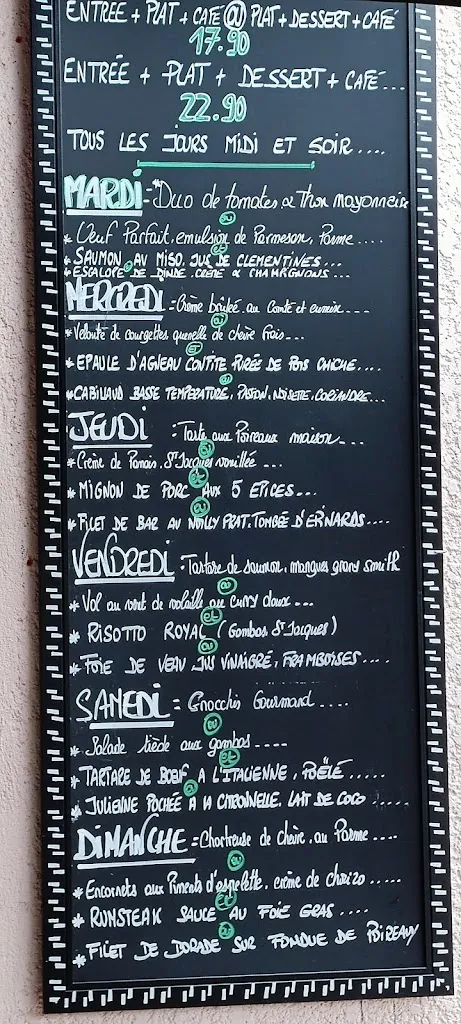 ENTREE + PLAT + CAFE OU PLAT + DESSERT + CAFÉ
17.90
ENTRÉE + PLAT + DESSERT + CAFÉ...
22.90
TOUS LES JOURS MIDI ET SOIR....
MARDI = Duo de tomates & Thon mayonnaise
ou
* Oeuf Parfait, emulsion de Parmesan, Parme....
* SAUMON AU MISO, JUS DE CLEMENTINES...
et
* ESCALOPE DE DINDE, CREME & CHAMPIGNONS...
MERCREDI = Crème brulée au Comté et cumin...
ou
* Velouté de courgettes quenelle de chèvre frais...
et
* EPAULE D'AGNEAU CONFITE PURÉE DE POIS CHICHE....
ou
* CABILLAUD BASSE TEMPERATURE, PASSION, NOISETTE, CORIANDRE...
JEUDI = Tarte aux Poireaux maison....
ou
* Crème de Panais, St Jacques vanillée...
et
* MIGNON DE PORC AUX 5 EPICES...
ou
* FILET DE BAR AU NOILLY PRAT, TOMBÉE D'EPINARDS....
VENDREDI = Tartare de saumon, mangues grany smith
ou
* Vol au vent de volaille au curry doux...
et
* RISOTTO ROYAL (Gambas St Jacques)
ou
* FOIE DE VEAU JUS VINAIGRÉ, FRAMBOISES....
SAMEDI = Gnocchis Gourmand.....
ou
* Salade tiède aux gambas....
et
* TARTARE DE BOEUF A L'ITALIENNE, POÊLÉ.....
ou
* JULIENNE POCHÉE A LA CITRONNELLE, LAIT DE COCO......
DIMANCHE = Chartreuse de chèvre, au Parme....
ou
* Encornets aux Piments d'espelette, crème de chorizo.....
et
* RUNSTEAK SAUCE AU FOIE GRAS....
ou
* FILET DE DORADE SUR FONDUE DE POIREAUX